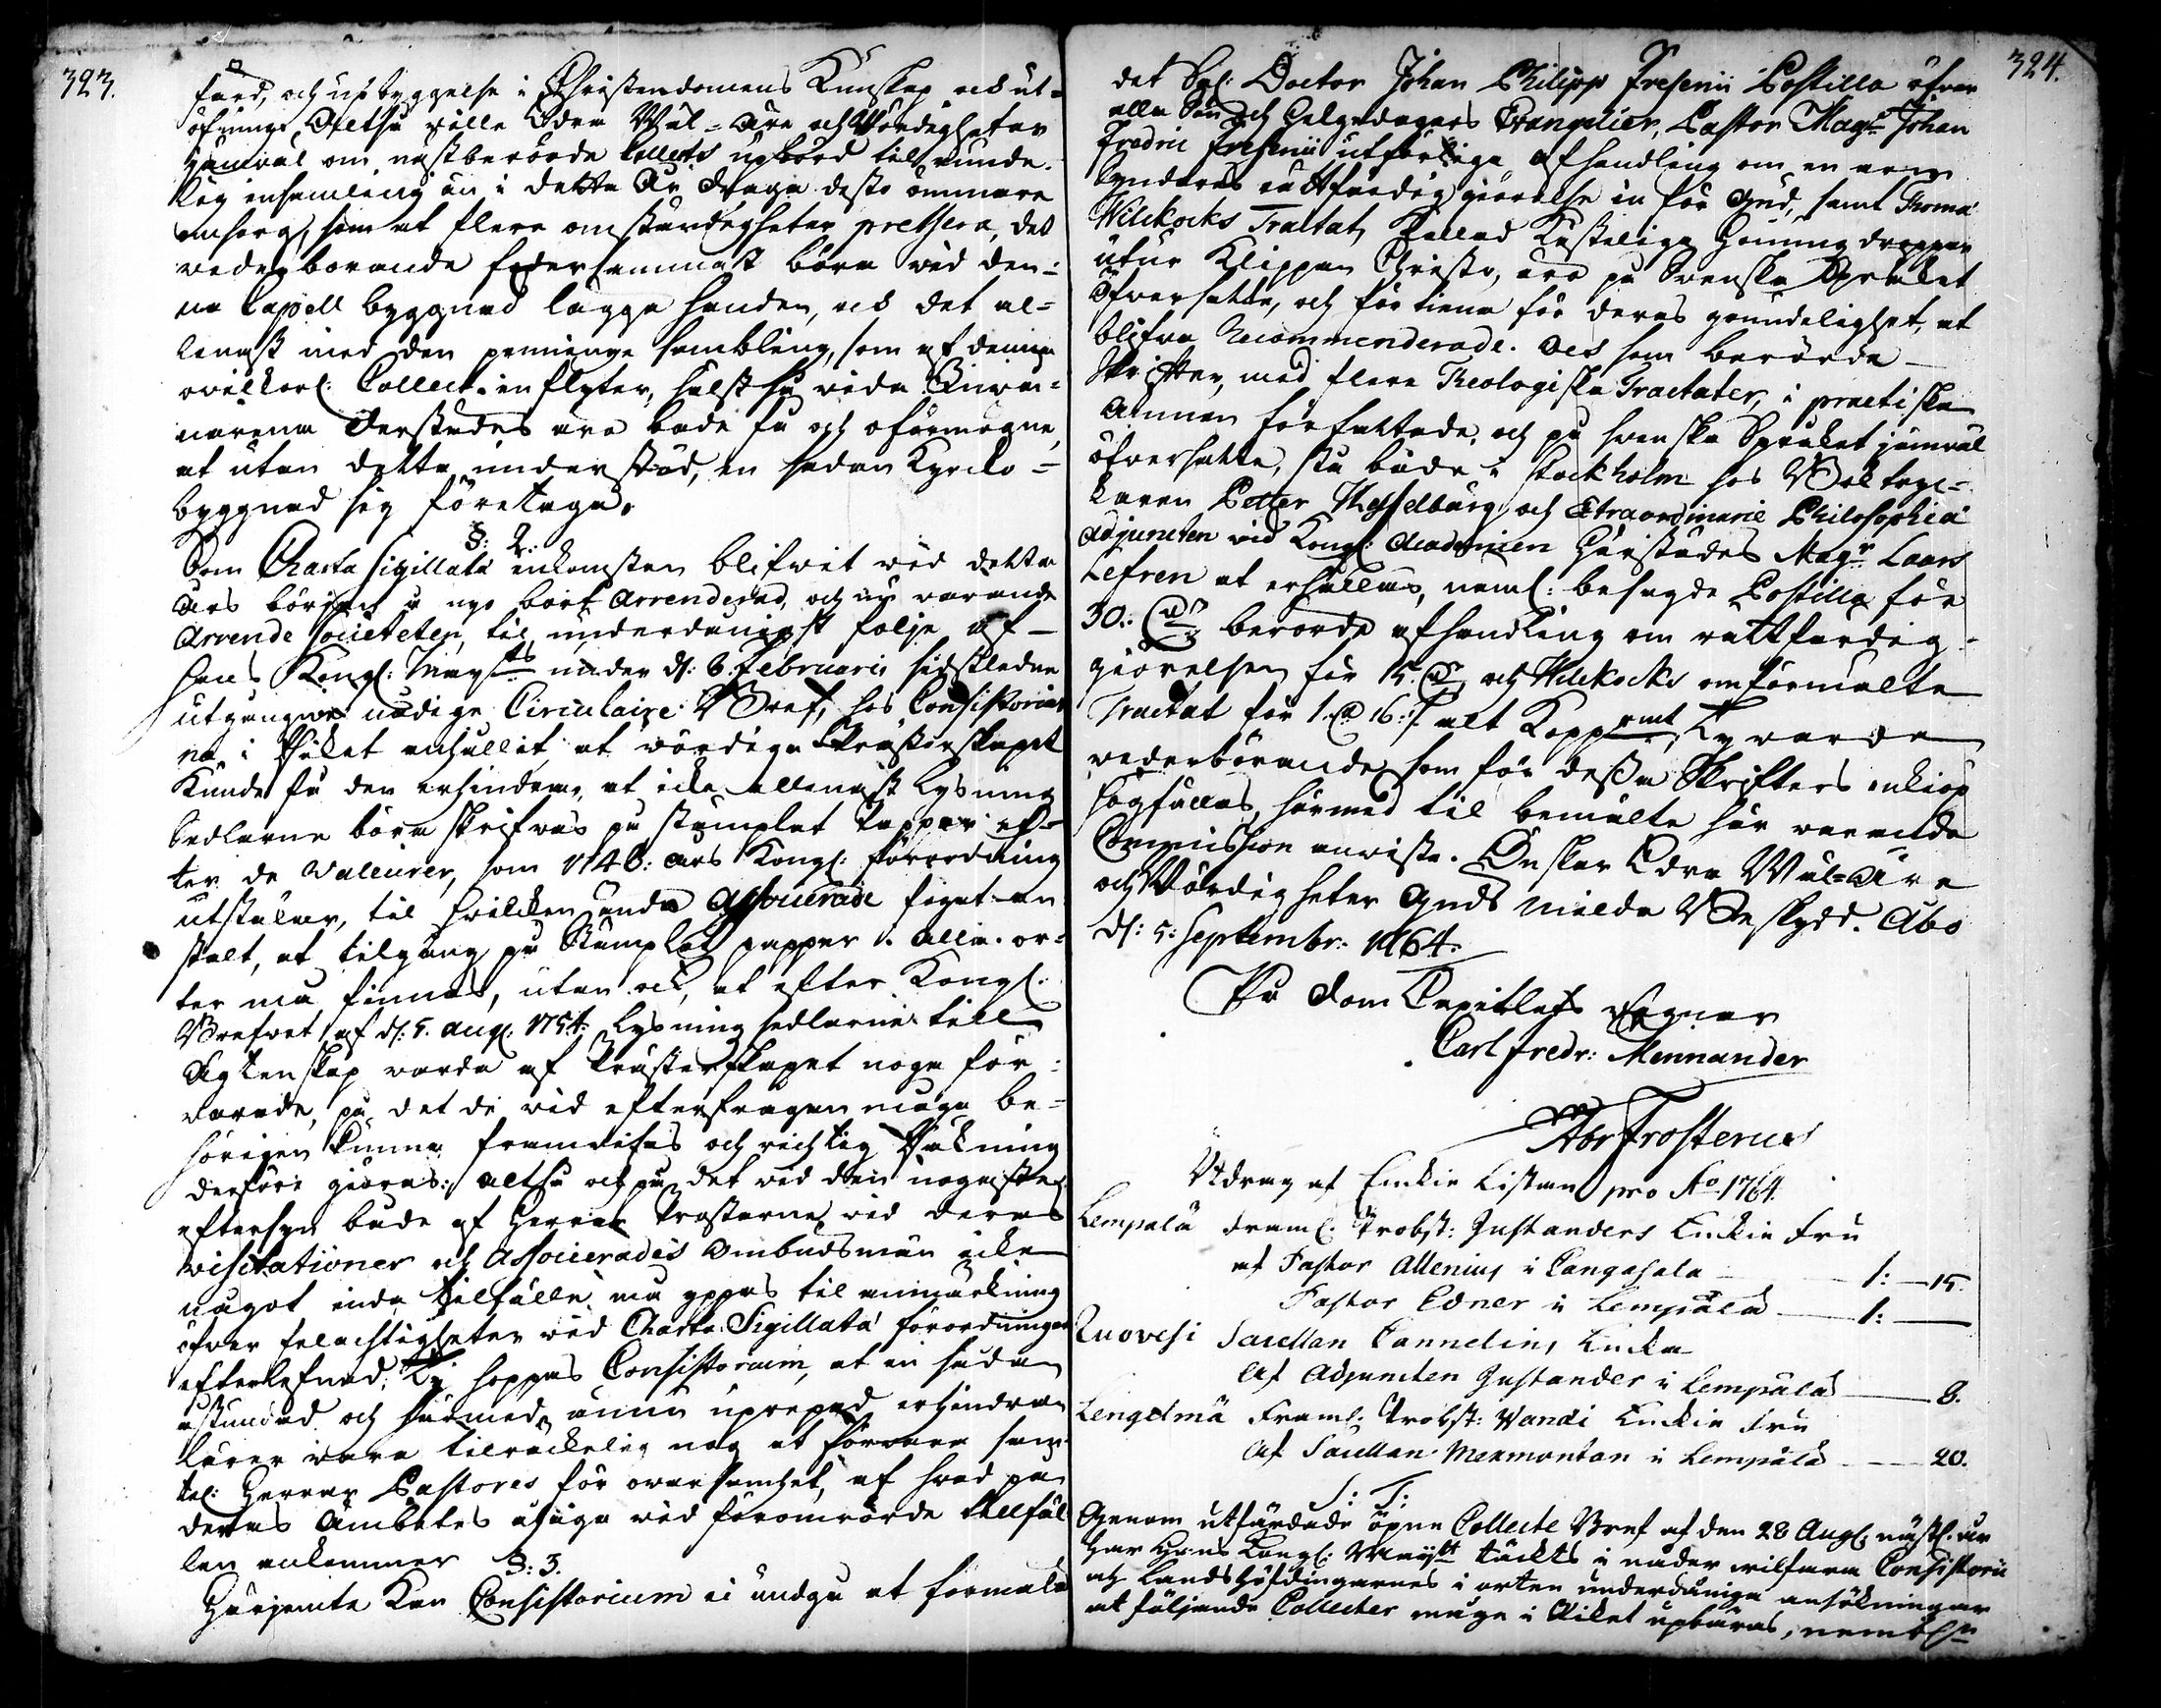 323.
färd, och upbyggelse i Christendomens Kunskap och ut-
öfning. Altså wille Edra Wäl-Äre och Wördigheter
jämwäl om nästberörde Collects upbörd til kunde-
lig insamling än i detta År draga desto ömmare
omsorg, som at flere omständigheter prethera, det
wederborande fodersammast böra wid den-
na Capell byggnad lägga handen, och det al-
lenast med den penninge sambling, som af denna
owilkorl: Collect inflyter, hälst så wida Inwå-
narena derstädes äro både få och oförmögne,
at utan detta understöd, en sådan Kyrcko-
byggnad sig företaga.
§: 2.
Som Charta Sigillatæ inkomsten blifwit wid detta
års början å nyo bort arrenderad, och nu warande
Arrende Societeten, til underdånigst följe af
Hans Kongl: Mayts under d: 6. Februarii sidstledne
utgångne nådige Circulaire Bref, hos Consistorier
na i Riket anhållit, at wördiga Presterskapet
kunde få den erhindran, at icke allenast Lysning
Sedlarne böra skrifwas på stämplat Papper ef-
ter de Valeurer, som 1748: års Kongl: förordning
utstakar, til hwilken ända Associerade fogat an-
stalt, at tilgång på Stämplat papper i alla or-
ter må finnas, utan ock, at efter Kongl:
Brefwet af d: 5. Aug. 1754. Lysning sedlarne till
Ägtenskap warda af Presterskapet noga för-
warade, på det de wid efterfrågan måga be-
hörigen kunna framwisas och richtig Räkning
derföre giöras: altså och på det wid den nogaste
eftersyn både af Herrar Prostarne wid deras
visitationer och Associerades Ombudsmän icke
något enda tilfälle må yppas til anmärkning
öfwer felachtigheter wid Charta Sigillatæ förordningens
efterlefnad; Ty hoppas Consistorium, at en sådan
åstundad och härmed ännu uprepad erhindran
lärer wara tilräckelig nog at förwara samt-
tel: Herrar Pastores för owarsamhet, af hwad på
deras Ämbetes åliga wid förenrörde tillfäl
len ankommer
§: 3.
Härjemte kan Consistorium ei undgå at formäla
324.
det Sal: Doctor Johan Philipp Fresenii Postilla öfwer
alla Sön och Helgedagars Evangelier, Pastor Magr Johan
Fredric Fresenii utförliga afhandling om en arm
Syndares rättfärdig giörelse in för Gud, samt Thomæ
Wilckocks Tractat, kallad Kostelige Honungdroppar
utur Klippan Christo, äro på Swenska Språket
öfwersatte, och förtiena för deras grundelighet, at
blifwa Recommenderade. Och som berörde
Skrifter, med flere Theologiska Tractater, i practiska
ämnen författade, och på Swenska Språket jämwäl
öfwersatte, stå både i Stockholm hos Boktryc-
karen Petter Hesselberg, och Extraordinarie Philosophiæ
adjuncten wid Kongl: Academien Härstädes Magr Laars
Lefren at erhållas, neml: besagde Postilla för
30: dr berörde afhandling om rättfärdig-
giörelsen för 15. dr och Wilckocks omförmälte
Tractat för 1. dr 16: s alt Kopprmt; Ty warda
wederbörande som för dessa Skrifters inkiöp
hogfällas, härmed til bemälte här warande
Commission anwiste. Önskar Edra Wäl-Äre
och Wördigheter Guds milda Beskydd. Åbo
d: 5: Septembr: 1764.
På Dom Capitlets wägnar
Carl Fredr: Mennander
Abr Frosterus
Utdrag af Enckie Listan pro Ao 1764.
Lempälä Framl: Probst: Justanders Enckie Fru
af Pastor Allenius i Cangasala 1: 15.
Pastor Edner i Lempälä 1:
Ruovesi Sacellan Cannelins Encka
Af Adjuncten Justander i Lempälä 8.
Lengelmä Framl. Probst: Wandi Enckie Fru
Af Sacellan Mexmontan i Lempälä 20.
S: T:
Genom utfärdade öpne Collecte Bref af den 28 Aug: nästl. år
Har Hans Kongl: Mayjtt täckts i nåder wilfara Consistorii
och Landshöfdingarnes i orten underdåniga ansökningar
at följande Collecter måge i Riket upbäras, nembln